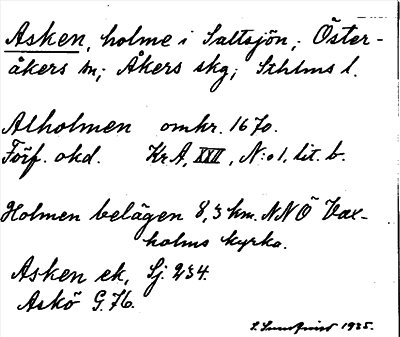 Asken, holme i Saltsjön; Öster-
åkers sn; Åkers skg; Sthlms l.
Alholmen omkr. 1670.
Förf. okd. Kr A, XXII, N:o 1, lit. b.
Holmen belägen 8,3 km. NNÖ Vax-
holms kyrka.
Asken ek, Sj. 234.
Askö G. 76.
S. Sundqvist 1925.